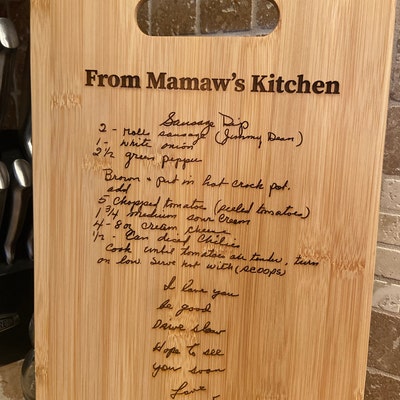 From Mamaw's Kitchen
Sausage Dip
2 - Rolls sausage (Jimmy Dean)
1 - White onion
2 1/2 green pepper
Brown + put in hot crock pot.
add
5 Chopped tomatoes (peeled tomatoes)
1 3/4 medium sour cream
4 - 8 oz cream cheese
1/2 - Can diced chilies
Cook until tomatoes are tender, turn
on low serve hot with (SCOOPS)
I love you
be good
Drive slow
Hope to see
you soon
Love